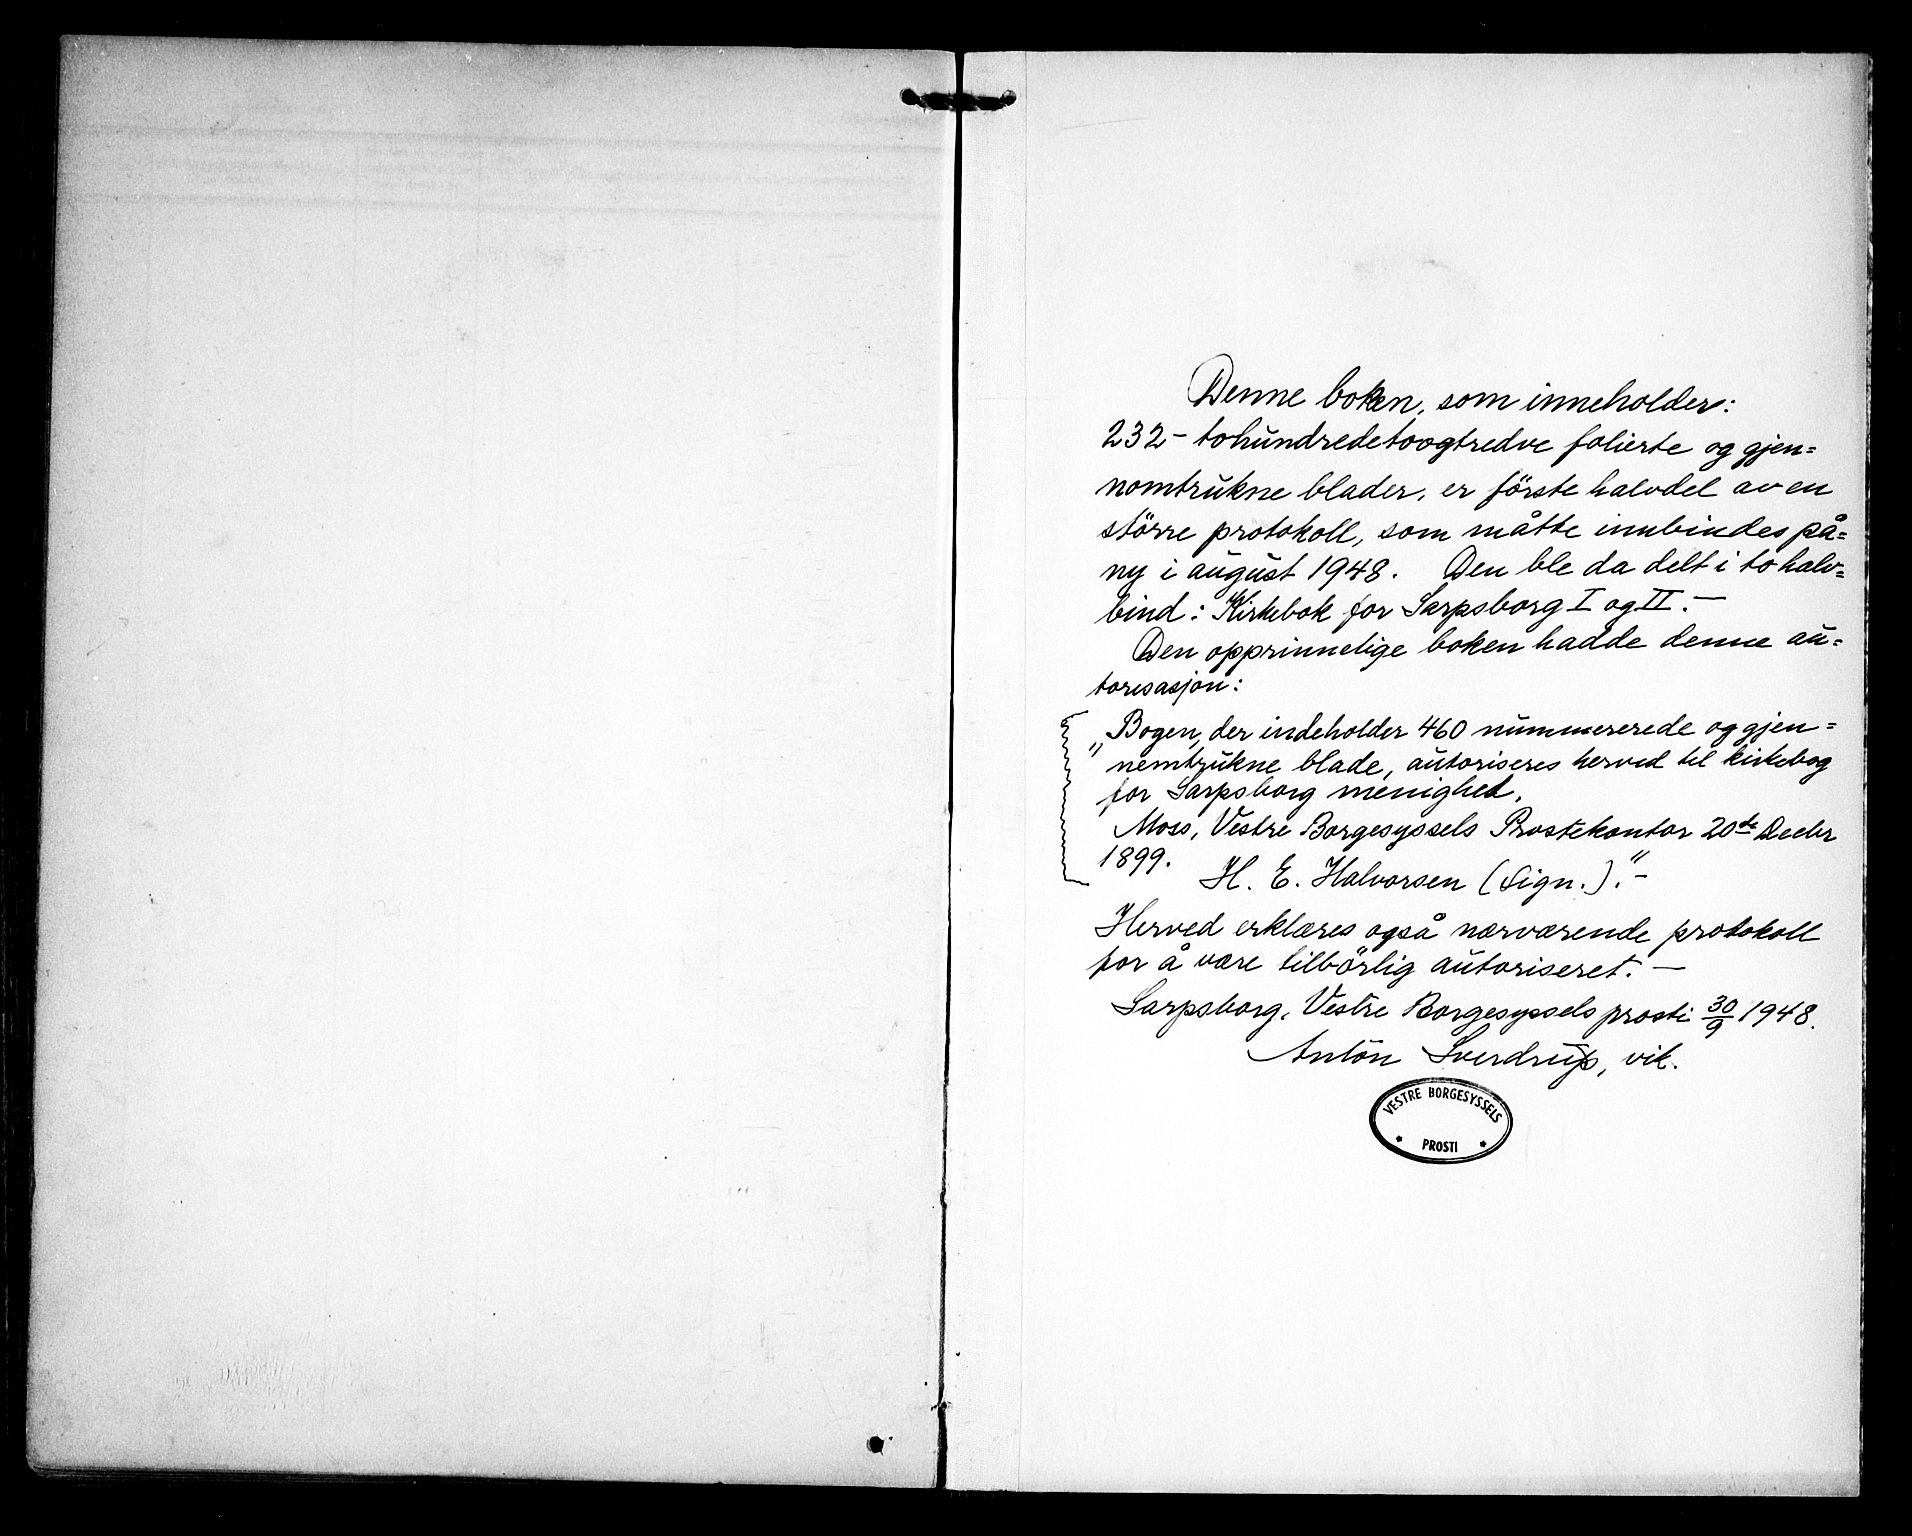 Denne boken, som inneholder:
232 - tohundredetoogtredve folierte og gjen=
nomtrukne blader, er förste halvdel av en
större protokoll, som måtte innbindes på=
ny i august 1948. Den ble da delt i to halv=
bind: Kirkebok for Sarpsborg I og II. —
Den opprinnelige boken hadde denne au=
torisasjon:
„Bogen, der indeholder 460 nummererede og gjen=
nemtrukne blade, autoriseres herved til kirkebog
for Sarpsborg menighed.
Moss, Vestre Borgesyssels Prostekontor 20de Decbr
1899.
H. E. Halvorsen (sign.)." -
Herved erklæres også nærværende protokoll
for å være tilbörlig autoriseret. —
Sarpsborg, Vestre Borgesyssels prosti 30/9 1948.
Anton Sverdrup, vik.
VESTRE BORGESYSSELS
* PROSTI *